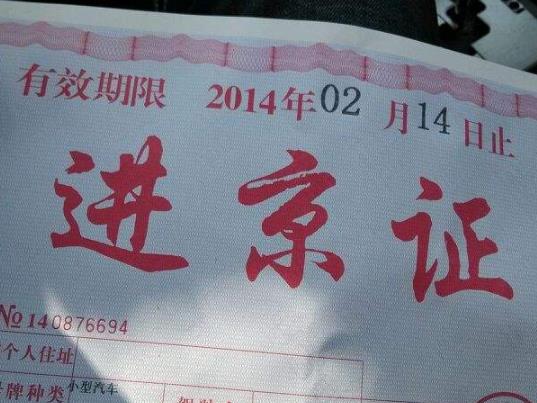 有效期限 2014年02月14日止
进京证
№ 140876694
个人住址
牌种类 小型汽车